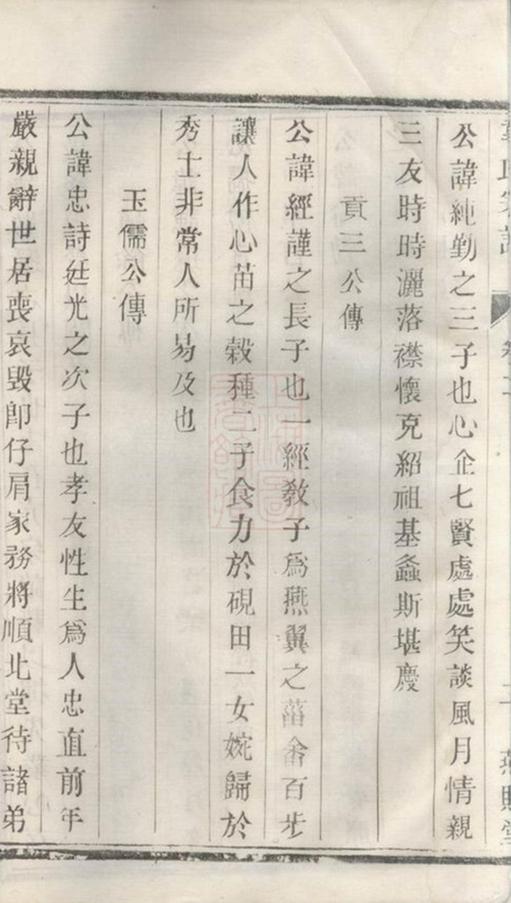 公諱純勤之三子也心企七賢處處笑談風月情親
三友時時灑落襟懷克紹祖基螽斯堪慶
貢三公傳
公諱經謹之長子也一經教子爲燕翼之菑畬百步
讓人作心苗之穀種二子食力於硯田一女婉歸於
秀士非常人所易及也
玉儒公傳
公諱忠詩廷光之次子也孝友性生爲人忠直前年
嚴親辭世居喪哀毀卽仔肩家務將順北堂待諸弟